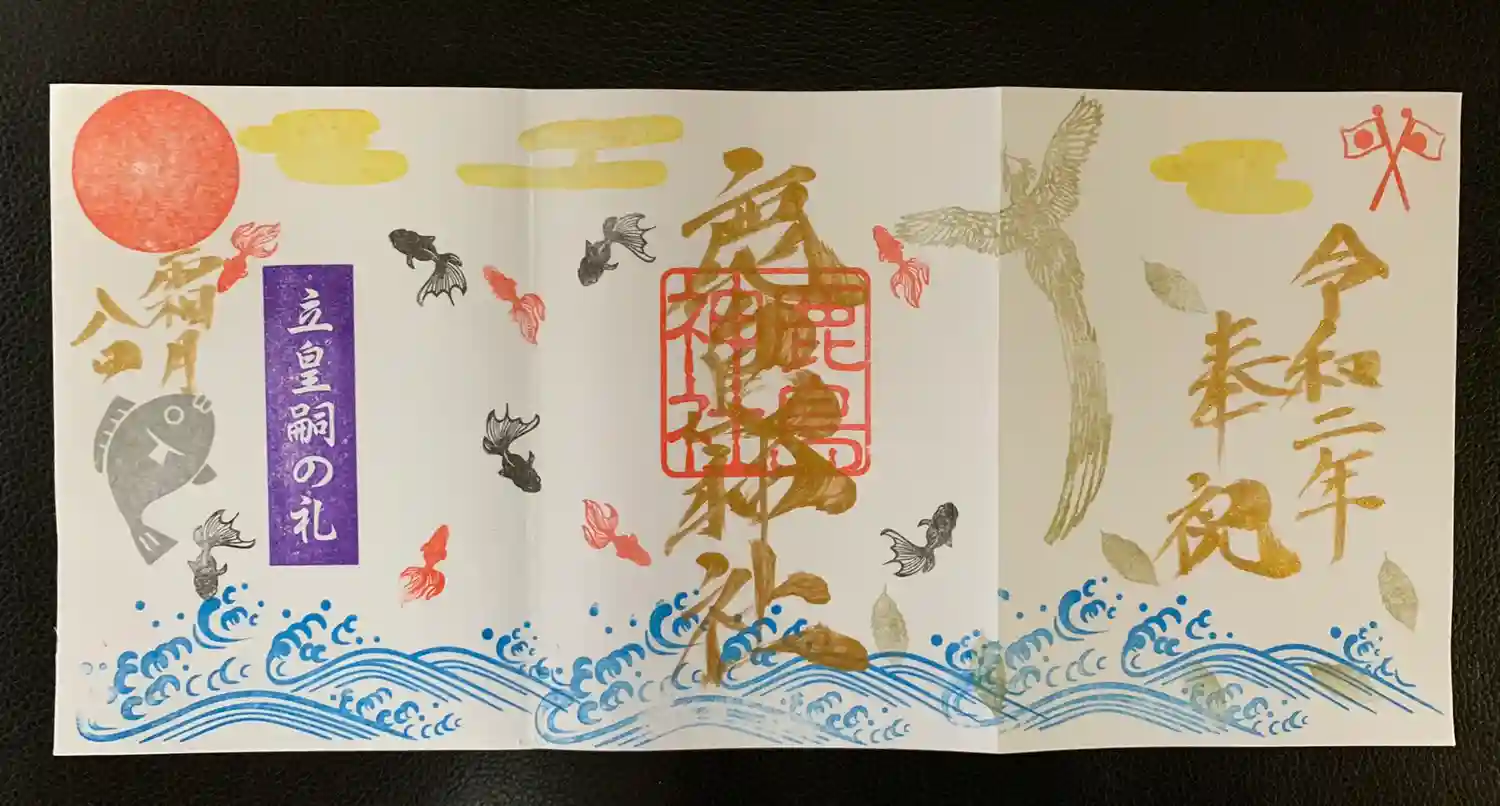 令和二年
奉祝
鹿島神社
鹿島神社
立皇嗣の礼
霜月
八日